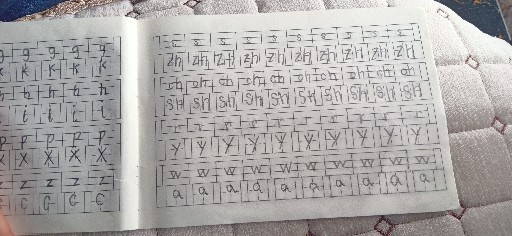 g g g g g
k k k k k
h h h h h
i i i i
p p p p p
x x x x x
z z z z z
c c c c c
zh zh zh zh zh zh zh zh zh zh
ch ch ch ch ch ch ch ch ch ch
sh sh sh sh sh sh sh sh sh sh
r r r r r r r r r
y y y y y y y y y y
w w w w w w w w w w
a a a a a a a a a a